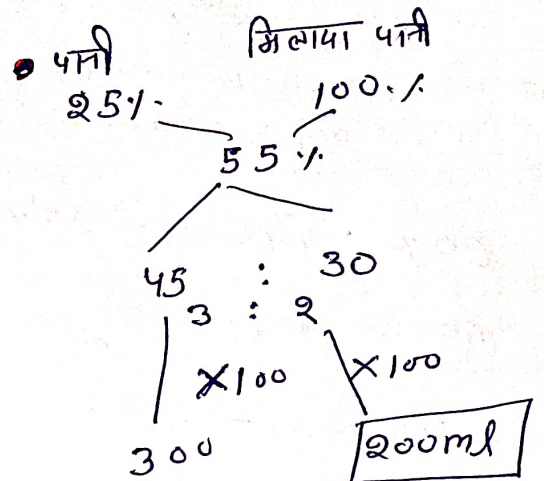 पानी मिलाया पानी
25% 100%
55%
45 : 30
3 : 2
×100 ×100
300 200ml